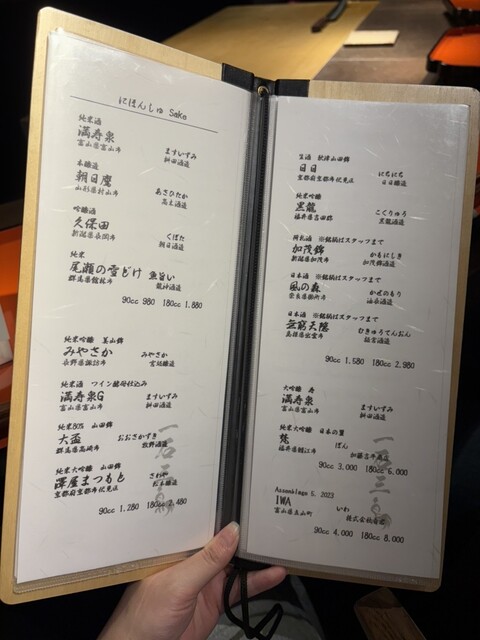 にほんしゅ Sake
純米酒
満寿泉 ますいずみ
富山県富山市 桝田酒造
本醸造
朝日鷹 あさひたか
山形県村山市 高木酒造
吟醸酒
久保田 くぼた
新潟県長岡市 朝日酒造
純米
尾瀬の雪どけ 魚旨い
群馬県館林市 龍神酒造
90cc 980 180cc 1.880
純米吟醸 美山錦
みやさか みやさか
長野県諏訪市 宮坂醸造
純米酒 ワイン酵母仕込み
満寿泉G ますいずみ
富山県富山市 桝田酒造
純米80% 山田錦
大盃 おおさかずき
群馬県高崎市 牧野酒造
純米大吟醸 山田錦
澤屋まつもと さわや
京都府京都市伏見区 松本酒造
90cc 1.280 180cc 2.480
生酒 秋津山田錦
日日 にちにち
京都府京都市伏見区 日日醸造
純米吟醸
黒龍 こくりゅう
福井県吉田郡 黒龍酒造
※銘柄はスタッフまで
加茂錦 かもにしき
新潟県加茂市 加茂錦酒造
日本酒 ※銘柄はスタッフまで
風の森 かぜのもり
奈良県御所市 油長酒造
日本酒 ※銘柄はスタッフまで
無窮天穏 むきゅうてんおん
島根県出雲市 板倉酒造
90cc 1.580 180cc 2.980
大吟醸 寿
満寿泉 ますいずみ
富山県富山市 桝田酒造
純米大吟醸 日本の翼
梵 ぼん
福井県鯖江市 加藤吉平商店
90cc 3,000 180cc 6,000
Assemblage 5. 2023
IWA いわ
富山県立山町 株式会社白岩
90cc 4,000 180cc 8,000